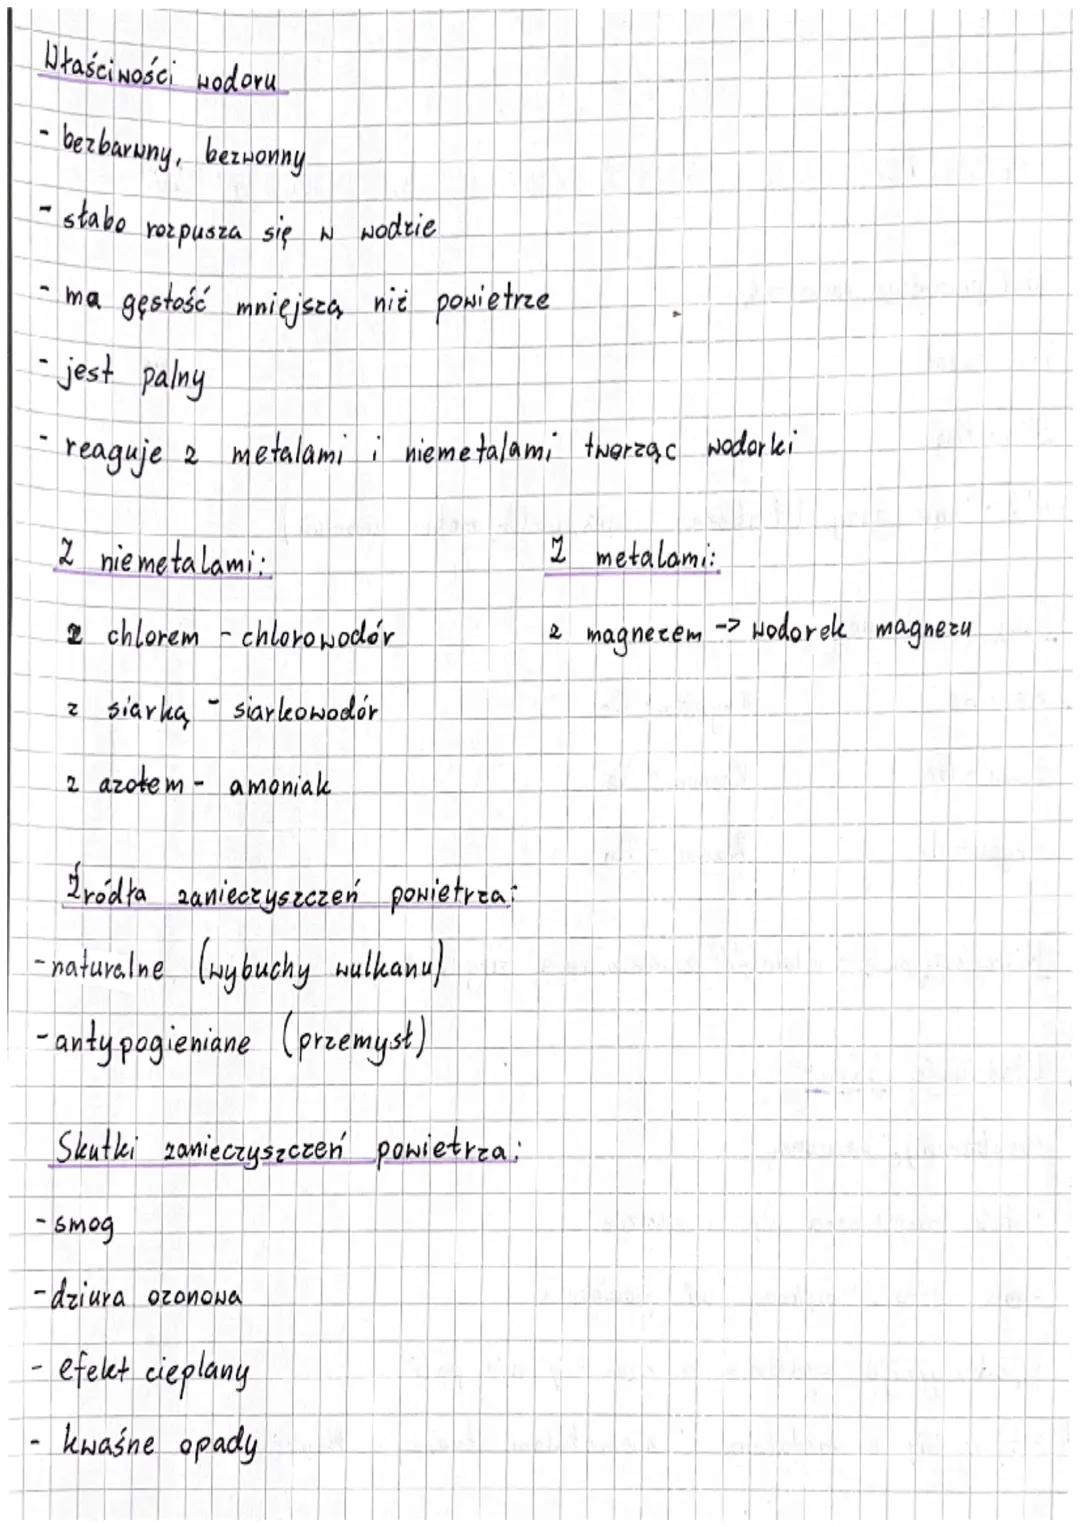 Właściwości wodoru
- bezbarwny, bezwonny
- słabo rozpusza się w wodzie
- ma gęstość mniejszą niż powietrze
- jest palny
- reaguje z metalami i niemetalami tworząc wodorki
Z niemetalami:
z chlorem - chlorowodór
z siarką - siarkowodór
z azotem - amoniak
Z metalami:
z magnezem -> wodorek magnezu
Źródła zanieczyszczeń powietrza:
- naturalne (wybuchy wulkanu)
- antypogieniane (przemysł)
Skutki zanieczyszczeń powietrza:
- smog
- dziura ozonowa
- efekt cieplany
- kwaśne opady